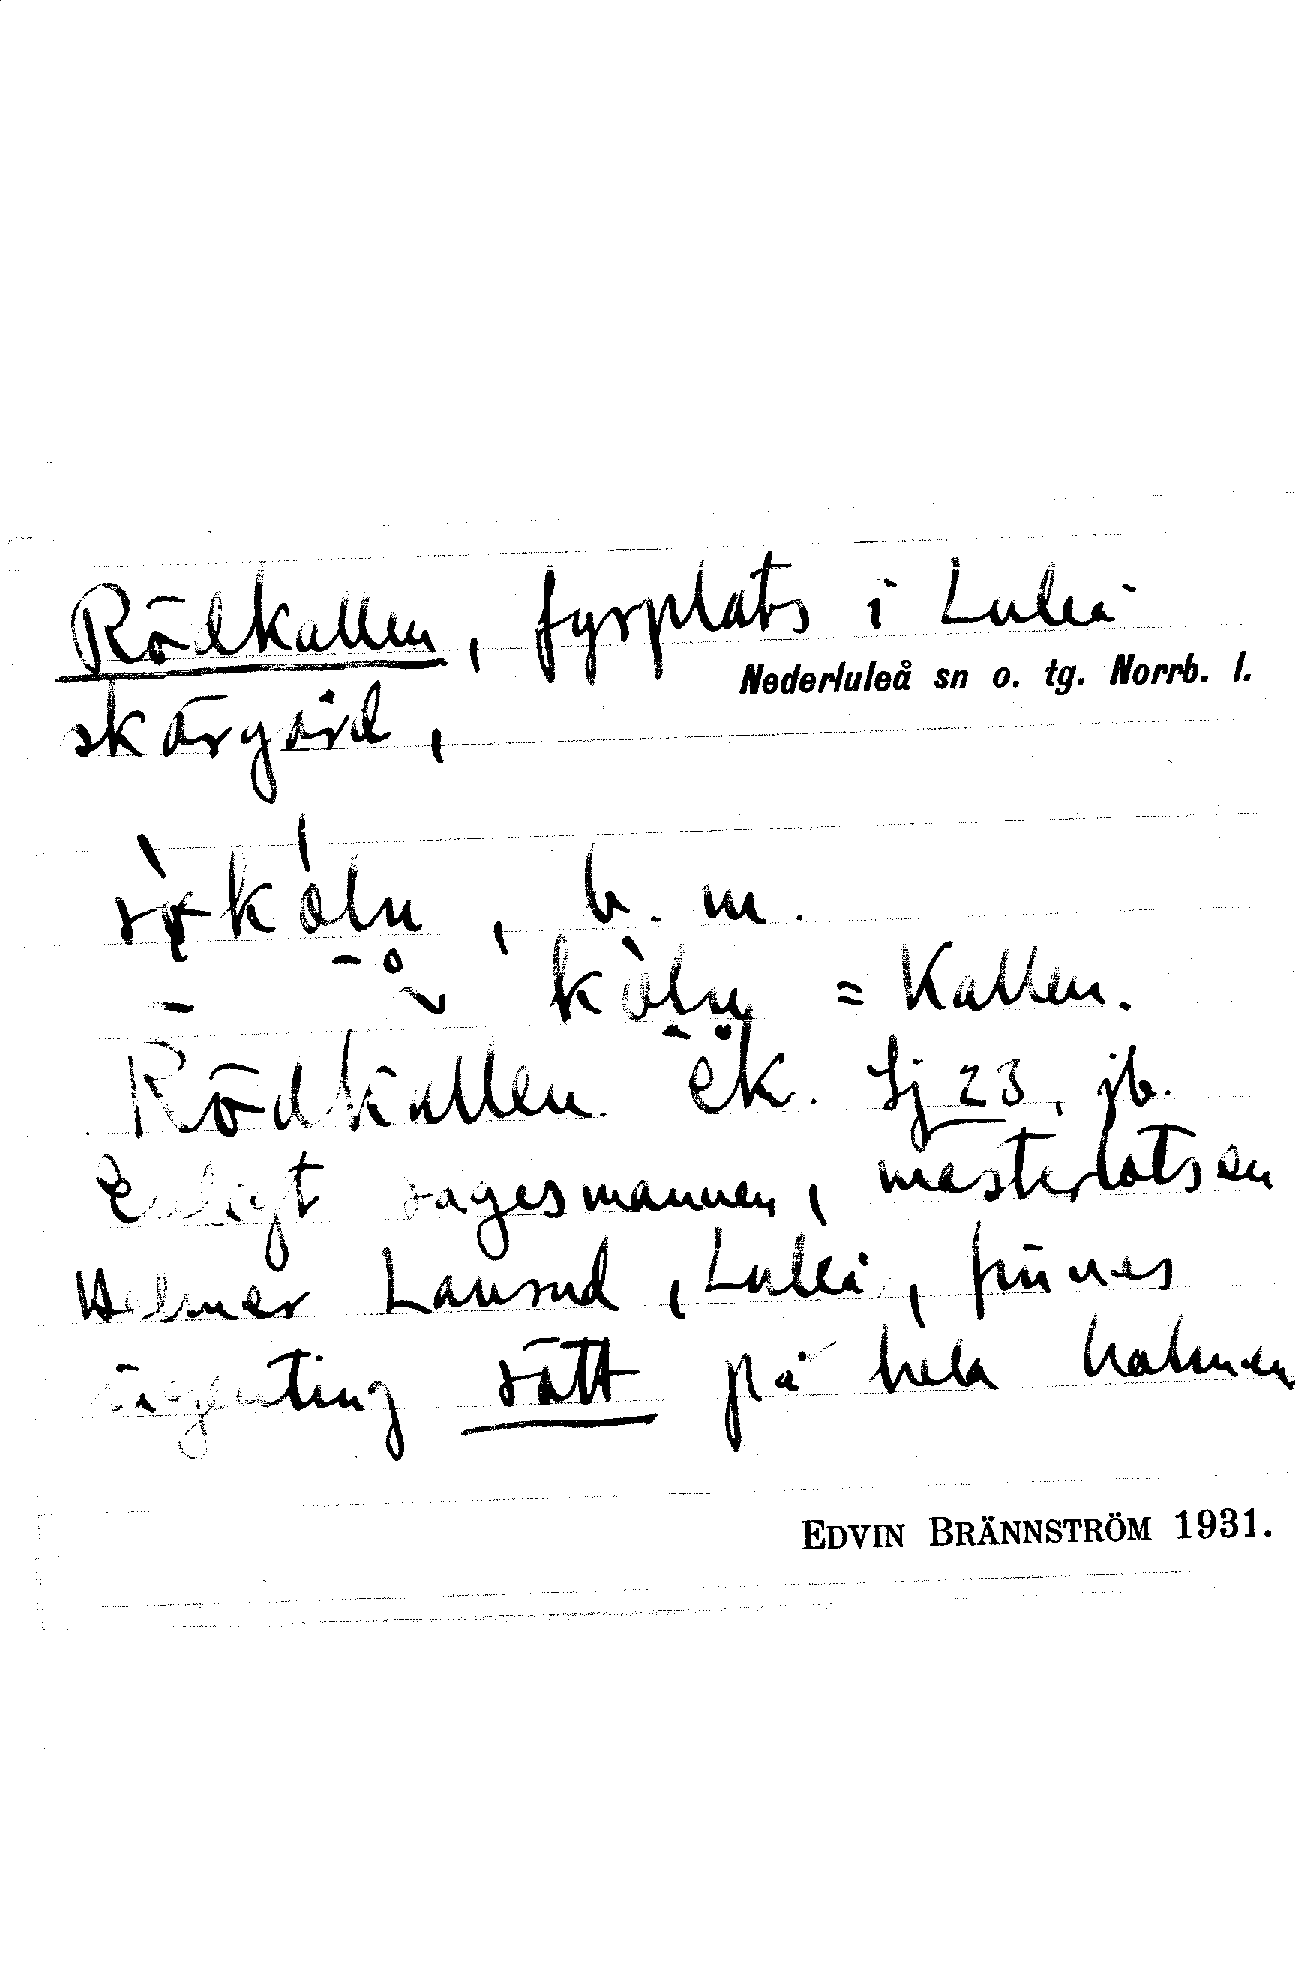 Rödkallen, fyrplats i Luleå
Nederluleå sn o. tg. Norrb. l.
skärgård,
b. m.
= Kallen.
Rödkallen ek. Lj 23, jb.
Enligt sagesmannen, mästerlotsen
Helmer Lansrud, Luleå, finnes
ingenting rött på hela holmen
EDVIN BRÄNNSTRÖM 1931.